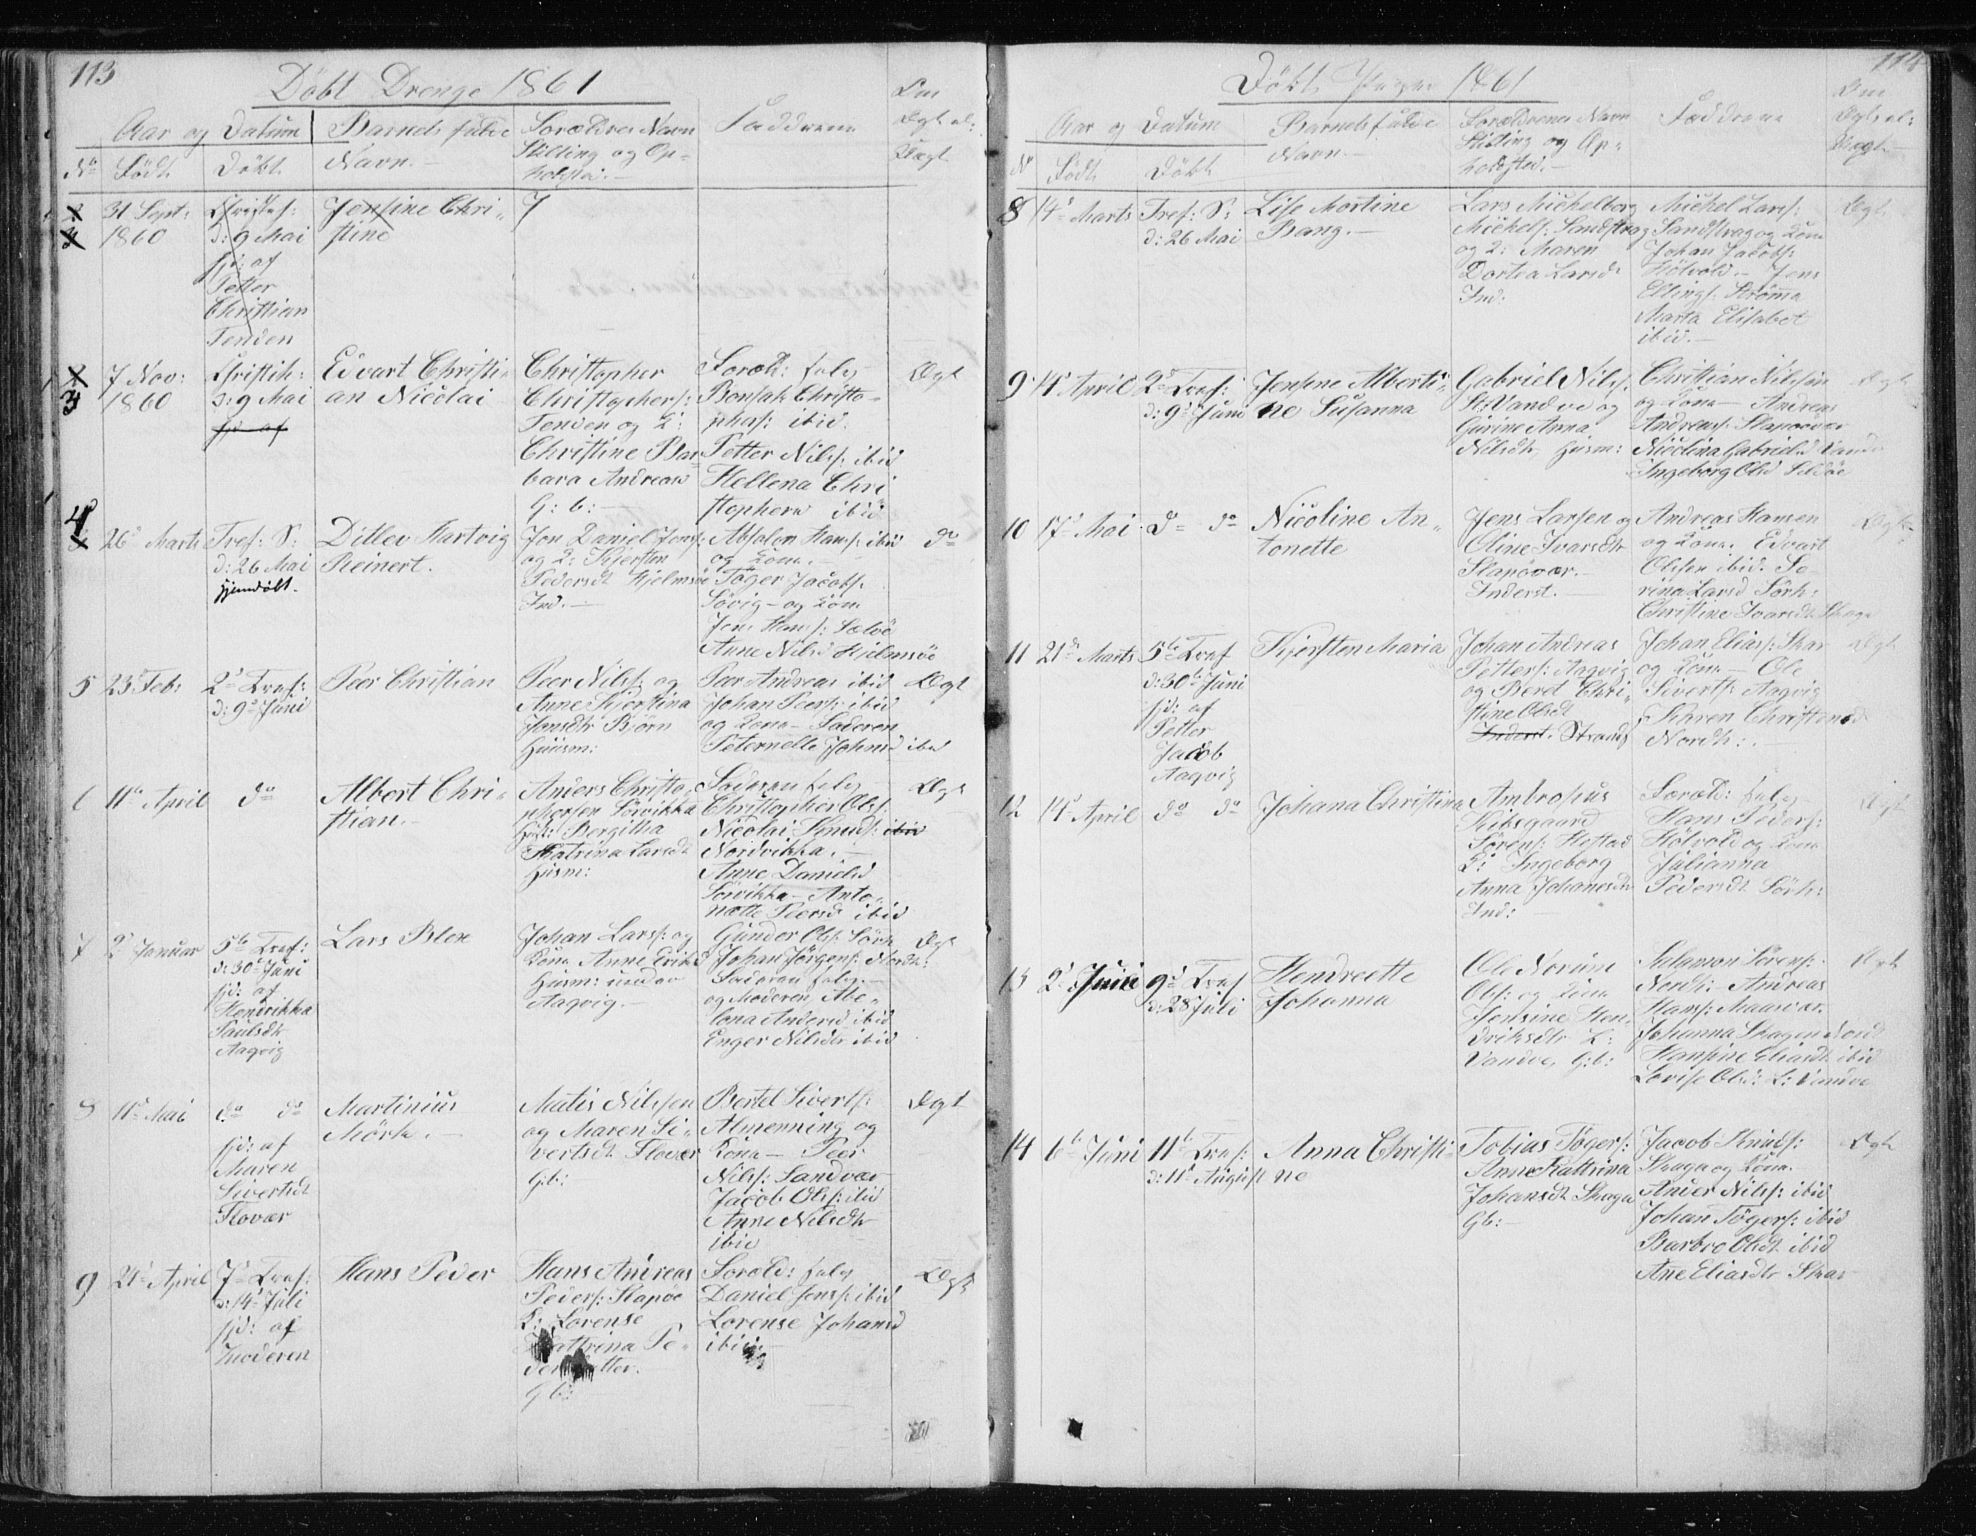 113
Döbt Drenge 1861
Aar og Datum
No
Født
Döbt
Barnets fulde
Navn.-
Forældres Navn
Stilling og Op-
holdsted.-
Fadderne
Om
Ægt el:
Uægt
31 Sept:
1860
Christihf:
d: 9 Mai
hjd: af
Petter
Christian
Tenden
Jensine Chri-
stine
3
7 Nov:
1860
Christih:
d: 9 Mai
hjd af
Edvart Christi-
an Nicolai
Christopher
Christophers:
Tenden og K:
Christine Bar-
bara Andreasd
G: b:-
Foræld: selv
Bonsak Christo-
phers: ibid.
Petter Nilss: ibid
Hellena Chri
stophersd ibid
Ægt
4
26 Marts
Tref: S:
d: 26 Mai
hjemdöbt.
Ditlev Hartvig
Reinert.
Jon Daniel Jons:
og K: Kjersten
Pedersdt Hjelmsöe
Ind.-
Absolon Hans: ibid
og Kone.-
Töger Jacobs:
Sövig - og Kone
Jens Hans: Solöe
Anne Nilsd Hjelmsöe
do
5
23 Feb:
2d Tref:
d: 9d Juni
Peer Christian
Peer Nilss: og
Anne Kierstina
Jonsdtr Björn
Huusm:
Peer Andreas ibid
Johan Peers: ibid
og Kona - Faderen
Peternelle Johnsd ibid
Ægt
6
11 April
do
Albert Chri-
stian.-
Anders Christo-
phersen Sörvikka
Berghitha
Katrina Larsdt
Husm:
Faderen selv
Christopher Ols:
Nicolai Knuds: ibid
Nordvikka.-
Anne Danielsd
Sörvikka - Anto-
nette Peersd ibid
Ægt
7
2d Januar
5te Tref:
d: 30 Juni
hjd: af
Hendrikka
Paulsdt
Aagvig
Lars Blex
Johan Lars: og
Kone Anne Eriksd
Husm: under
Aagvig.-
Gunder Ols: Sörh
Johan Jörgens: Nordh:
Faderen selv.-
og Moderen Abe-
lona Andersd ibid
Enger Nilsdtr ibid
Ægt
8
11d Mai
do do
hjd: af
Maren
Sivertsdt
Flovær
Martinius
Mörk.-
Matis Nilssen
og Maren Si-
vertsdt Flovær
Gb:
Bertel Siverts:
Almenning og
Kona - Peer
Nilss: Sandvær
Jacob Ols: ibid
Anne Nilsdtr
ibid
Ægt
9
21 April
7d Tref:
d: 14 Juli
hjd: af
Moderen
Hans Peder
Hans Andreas
Peders: Slapöe
K: Lorense
Kattrina Pe-
dersdatter.
Gb:
Foræld: selv
Daniel Jenss: ibid
Lorense Johansd
ibid-
Ægt
114
Döbt Piger 1861
Aar og Datum
No
Födt
Döbt
Barnets fulde
Navn.-
Forældrenes Navn
Stilling og Op-
holdsted.-
Fadderne
Om
Ægt el:
Uægt
8
14d Marts
Tref: S:
d: 26 Mai
Lise Mortine
Bang.-
Lars Michelborg
Michels: Sandstrag
og K: Maren
Dortea Larsdt
Ind:
Michel Lars:
Sandstrag og Kone
Johan Jacobs:
Hölvold.- Jens
Ellings: Strömma
Marta Elisabet
ibid.-
Ægt
9
14 April
2d Tref:
d: 9d Juni
Jensine Alberti-
ne Susanna
Gabriel Nilss:
St: Vandve og
Gurine Anna
Nilsdtr, Husm:
Christian Nilssön
og Kona - Andreas
Andreass: Slapoevær
Nicolina Gabrielsd Vandve
Ingeborg Olsd Seloöe
Ægt
10
17d Mai
do do
Nicoline An-
tonette
Jens Larsen og
Oline Ivarsdtr
Slapövær.-
Inderst.-
Andreas Hansen
og Kona. Edvart
Olssen ibid. Se-
rina Larsd Sörh:
Christine Ivarsdt Skaga
Ægt
11
21d Marts
5te Tref
d: 30te Juni
hjd: af
Petter
Jacob
Aagvig
Kjersten Maria
Johan Andreas
Petters: Aagvig
og Beret Chri-
stine Olsdt
Inderst. Strand
Johan Elias: Skar
og Kona - Ole
Siverts: Aagvig
Karen Christensd
Nordh:.-
Ægt
12
14d April
do do
Johana Christina
Ambrosius
Kibsgaard
Sörens: Hestad
K: Ingeborg
Anna Johanesdtr
Ind:
Foræld: selv
Hans Peders:
Hölvold og Kona
Julianna
Pedersdt Sörh:
Ægt
13
2d Juni
9d Tref
d: 28 Juli
Hendreette
Johanna
Ole Norum
Ols: og Kona
Jensine Hen-
driksdtr L:
Vandve, Gb:
Salamon Sörens:
Nordh: Andreas
Hans: Maasvær.
Johanna Skagen Nord
Hansine Eliasdt ibid
Lovise Olsd: L: Vandve
Ægt
14
6te Juni
11te Tref:
d: 11te August
Anna Christi-
ne
Tobias Tögers:
Anne Kattrina
Johansdt Skaga
Gb:-
Jacob Knuds:
Skaga og Kona.
Ander Nilss: ibid
Johan Tögers: ibid
Barbro Olsdt ibid
Ane Eliasdtr Skar
Ægt